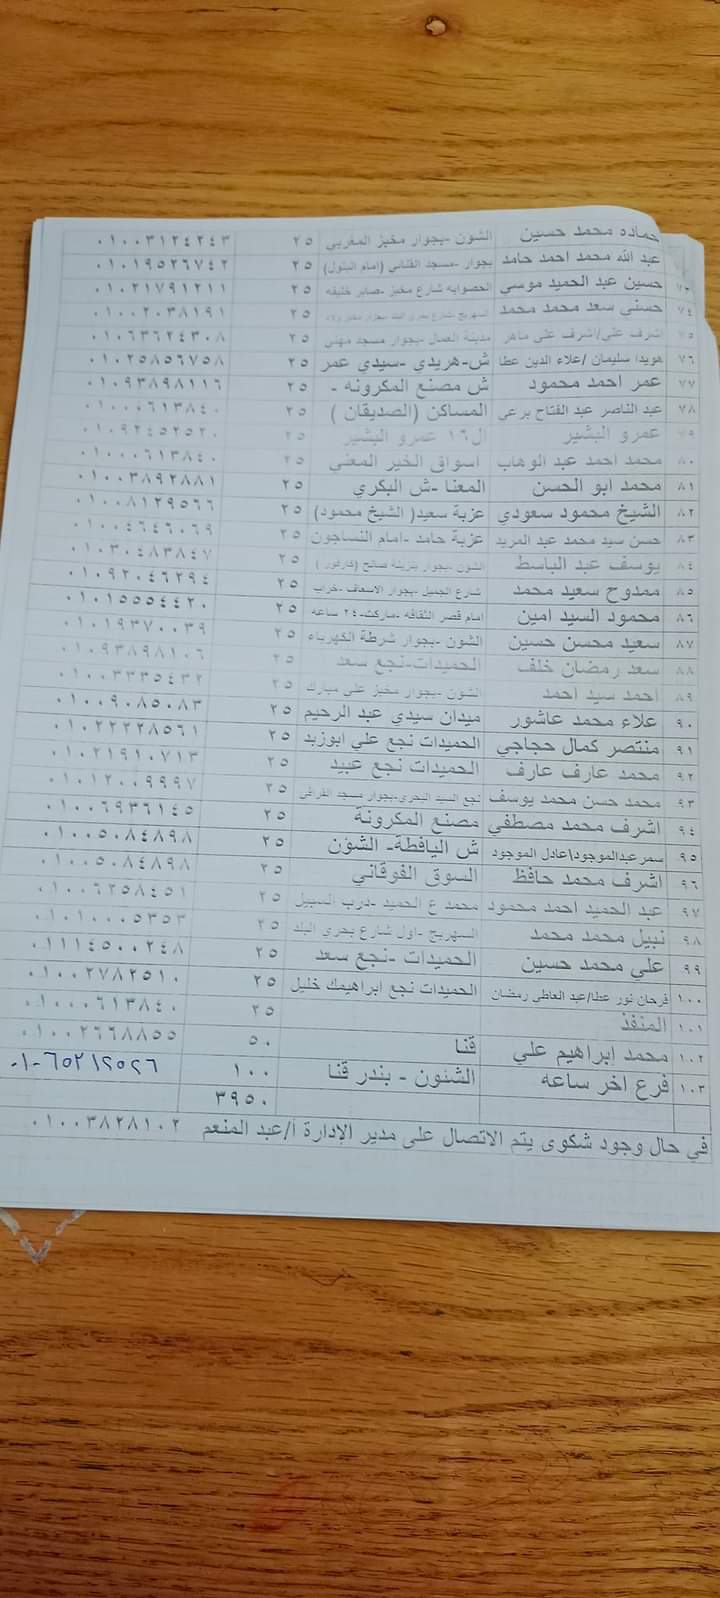 حماده محمد حسين الشون -بجوار مخبز المغربي ٢٥ ٠١٠٠٣١٢٤٢٤٣
عبد الله محمد احمد حامد بجوار -مسجد القناني (امام البنول) ٢٥ ٠١٠١٩٥٢٦٧٤٢
٧٣ حسين عبد الحميد موسي الحصوايه شارع مخبز -صابر خليفه ٢٥ ٠١٠٢١٧٩١٢١١
٧٤ حسنى سعد محمد محمد ٢٥ ٠١٠٠٢٠٣٨١٩١
٧٥ اشرف على/اشرف على ماهر مدينة العمال -بجوار مسجد مهني ٢٥ ٠١٠٦٣٦٢٤٣٠٨
٧٦ هويدا سليمان /علاء الدين عطا ش-هريدي -سيدي عمر ٢٥ ٠١٠٢٥٨٥٦٧٥٨
٧٧ عمر احمد محمود ش مصنع المكرونه - ٢٥ ٠١٠٩٣٨٩٨١١٦
٧٨ عبد الناصر عبد الفتاح برعي المساكن (الصديقان ) ٢٥ ٠١٠٠٠٦١٣٨٤٠
٧٩ عمرو البشير ال١٦ عمرو البشير ٢٥ ٠١٠٩٢٤٥٢٥٢٠
٨٠ محمد احمد عبد الوهاب اسواق الخير المعني ٢٥ ٠١٠٠٠٦١٣٨٤٠
٨١ محمد ابو الحسن المعنا -ش البكري ٢٥ ٠١٠٠٣٨٩٢٨٨١
٨٢ الشيخ محمود سعودي عزبة سعيد( الشيخ محمود) ٢٥ ٠١٠٠٨١٢٩٥٦٦
٨٣ حسن سيد محمد عبد المريد عزبة حامد -امام النساجون ٢٥ ٠١٠٠٤٦٤٦٠٦٩
٨٤ يوسف عبد الباسط الشون -بجوار بنزينة صالح ٢٥ ٠١٠٣٠٤٨٣٨٤٧
٨٥ ممدوح سعيد محمد شارع الجميل -بجوار الاسعاف -خراب ٢٥ ٠١٠٩٢٠٤٦٢٩٤
٨٦ محمود السيد امين امام قصر الثقافه -ماركت-٢٤ ساعه ٢٥ ٠١٠١٥٥٥٤٤٢٠
٨٧ سعيد محسن حسين الشون -بجوار شرطة الكهرباء ٢٥ ٠١٠١٩٣٧٠٠٣٩
٨٨ سعد رمضان خلف الحميدات-نجع سعد ٢٥ ٠١٠٩٣٨٩٨١٠٦
٨٩ احمد سيد احمد الشون -بجوار مخبز علي مبارك ٢٥ ٠١٠٠٣٣٣٥٤٣٢
٩٠ علاء محمد عاشور ميدان سيدي عبد الرحيم ٢٥ ٠١٠٠٩٠٨٥٠٨٣
٩١ منتصر كمال حجاجي الحميدات نجع علي ابوزيد ٢٥ ٠١٠٢٢٢٢٨٥٦١
٩٢ محمد عارف عارف الحميدات نجع عبيد ٢٥ ٠١٠٢١٩١٠٧١٣
٩٣ محمد حسن محمد يوسف نجع السيد البحري-بجوار مسجد القرافي ٢٥ ٠١٠١٢٠٠٩٩٩٧
٩٤ اشرف محمد مصطفي مصنع المكرونة ٢٥ ٠١٠٠٦٩٣٦١٤٥
٩٥ سمر عبدالموجود\عادل الموجود ش اليافطة- الشؤن ٢٥ ٠١٠٠٥٠٨٤٨٩٨
٩٦ اشرف محمد حافظ السوق الفوقاني ٢٥ ٠١٠٠٥٠٨٤٨٩٨
٩٧ عبد الحميد احمد محمود محمد ع الحميد -درب السبيل ٢٥ ٠١٠٠٦٢٥٨٤٥١
٩٨ نبيل محمد محمد السهريج -اول شارع بحري البلد ٢٥ ٠١٠١٠٠٠٥٣٥٣
٩٩ علي محمد حسين الحميدات -نجع سعد ٢٥ ٠١١١٤٥٠٠٢٤٨
١٠٠ فرحان نور عطا/عبد العاطى رمضان الحميدات نجع ابراهيمك خليل ٢٥ ٠١٠٠٢٧٨٢٥١٠
١٠١ المنفذ ٢٥ ٠١٠٠٠٦١٣٨٤٠
١٠٢ محمد ابراهيم علي قنا ٥٠ ٠١٠٠٢٦٦٨٨٥٥
١٠٣ فرع اخر ساعه الشئون - بندر قنا ١٠٠
٣٩٥٠
في حال وجود شكوى يتم الاتصال على مدير الإدارة أ/عبد المنعم ٠١٠٠٣٨٢٨١٠٢